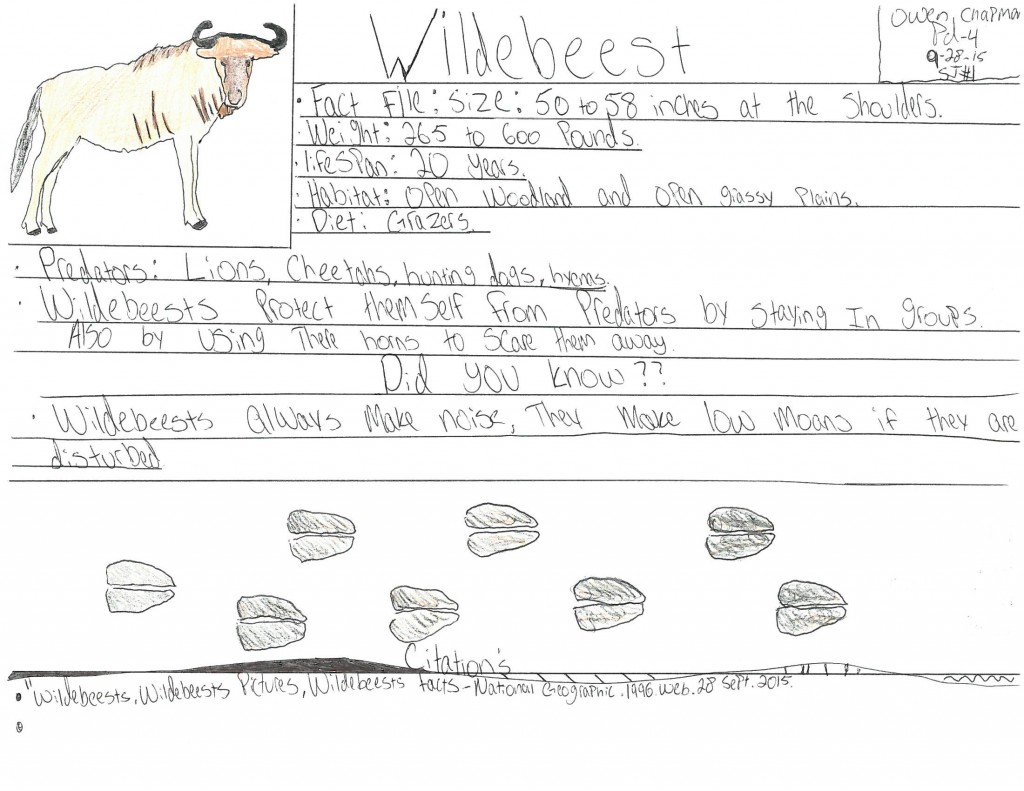 Wildebeest
Owen Chapma
Pd-4
9-28-15
SJ#1
· Fact File: Size: 50 to 58 inches at the Shoulders.
· Weight: 265 to 600 Pounds.
· lifeSpan: 20 years.
· Habitat: Open Woodland and open grassy Plains.
· Diet: Grazers.
· Predators: Lions, Cheetahs, hunting dogs, hyenas.
· Wildebeests Protect themSelf from Predators by Staying In groups.
Also by Using There horns to Scare them away.
Did you know??
· Wildebeests always Make noise, They Make low Moans if they are
disturbed
Citation's
• "Wildebeests, Wildebeests Pictures, Wildebeests facts-National Geographic. 1996. Web. 28 Sept. 2015.